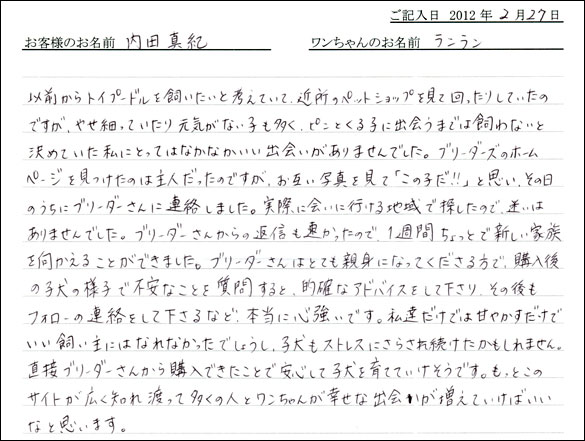 ご記入日 2012年2月27日
お客様のお名前 内田真紀 ワンちゃんのお名前 ランラン
以前からトイプードルを飼いたいと考えていて、近所のペットショップを見て回ったりしていたの
ですが、やせ細っていたり元気がない子も多く、ピンとくる子に出会うまでは飼わないと
決めていた私にとってはなかなかいい出会いがありませんでした。ブリーダーズのホーム
ページを見つけたのは主人だったのですが、お互い写真を見て「この子だ!!」と思い、その日
のうちにブリーダーさんに連絡しました。実際に会いに行ける地域で探したので、迷いは
ありませんでした。ブリーダーさんからの返信も速かったので、1週間ちょっとで新しい家族
を向かえることができました。ブリーダーさんはとても親身になってくださる方で、購入後
の子犬の様子で不安なことを質問すると、的確なアドバイスをして下さり、その後も
フォローの連絡をして下さるなど、本当に心強いです。私達だけでは甘やかすだけで
いい飼い主にはなれなかったでしょうし、子犬もストレスにさらされ続けたかもしれません。
直接ブリーダーさんから購入できたことで安心して子犬を育てていけそうです。もっとこの
サイトが広く知れ渡って多くの人とワンちゃんが幸せな出会いが増えていけばいい
なと思います。